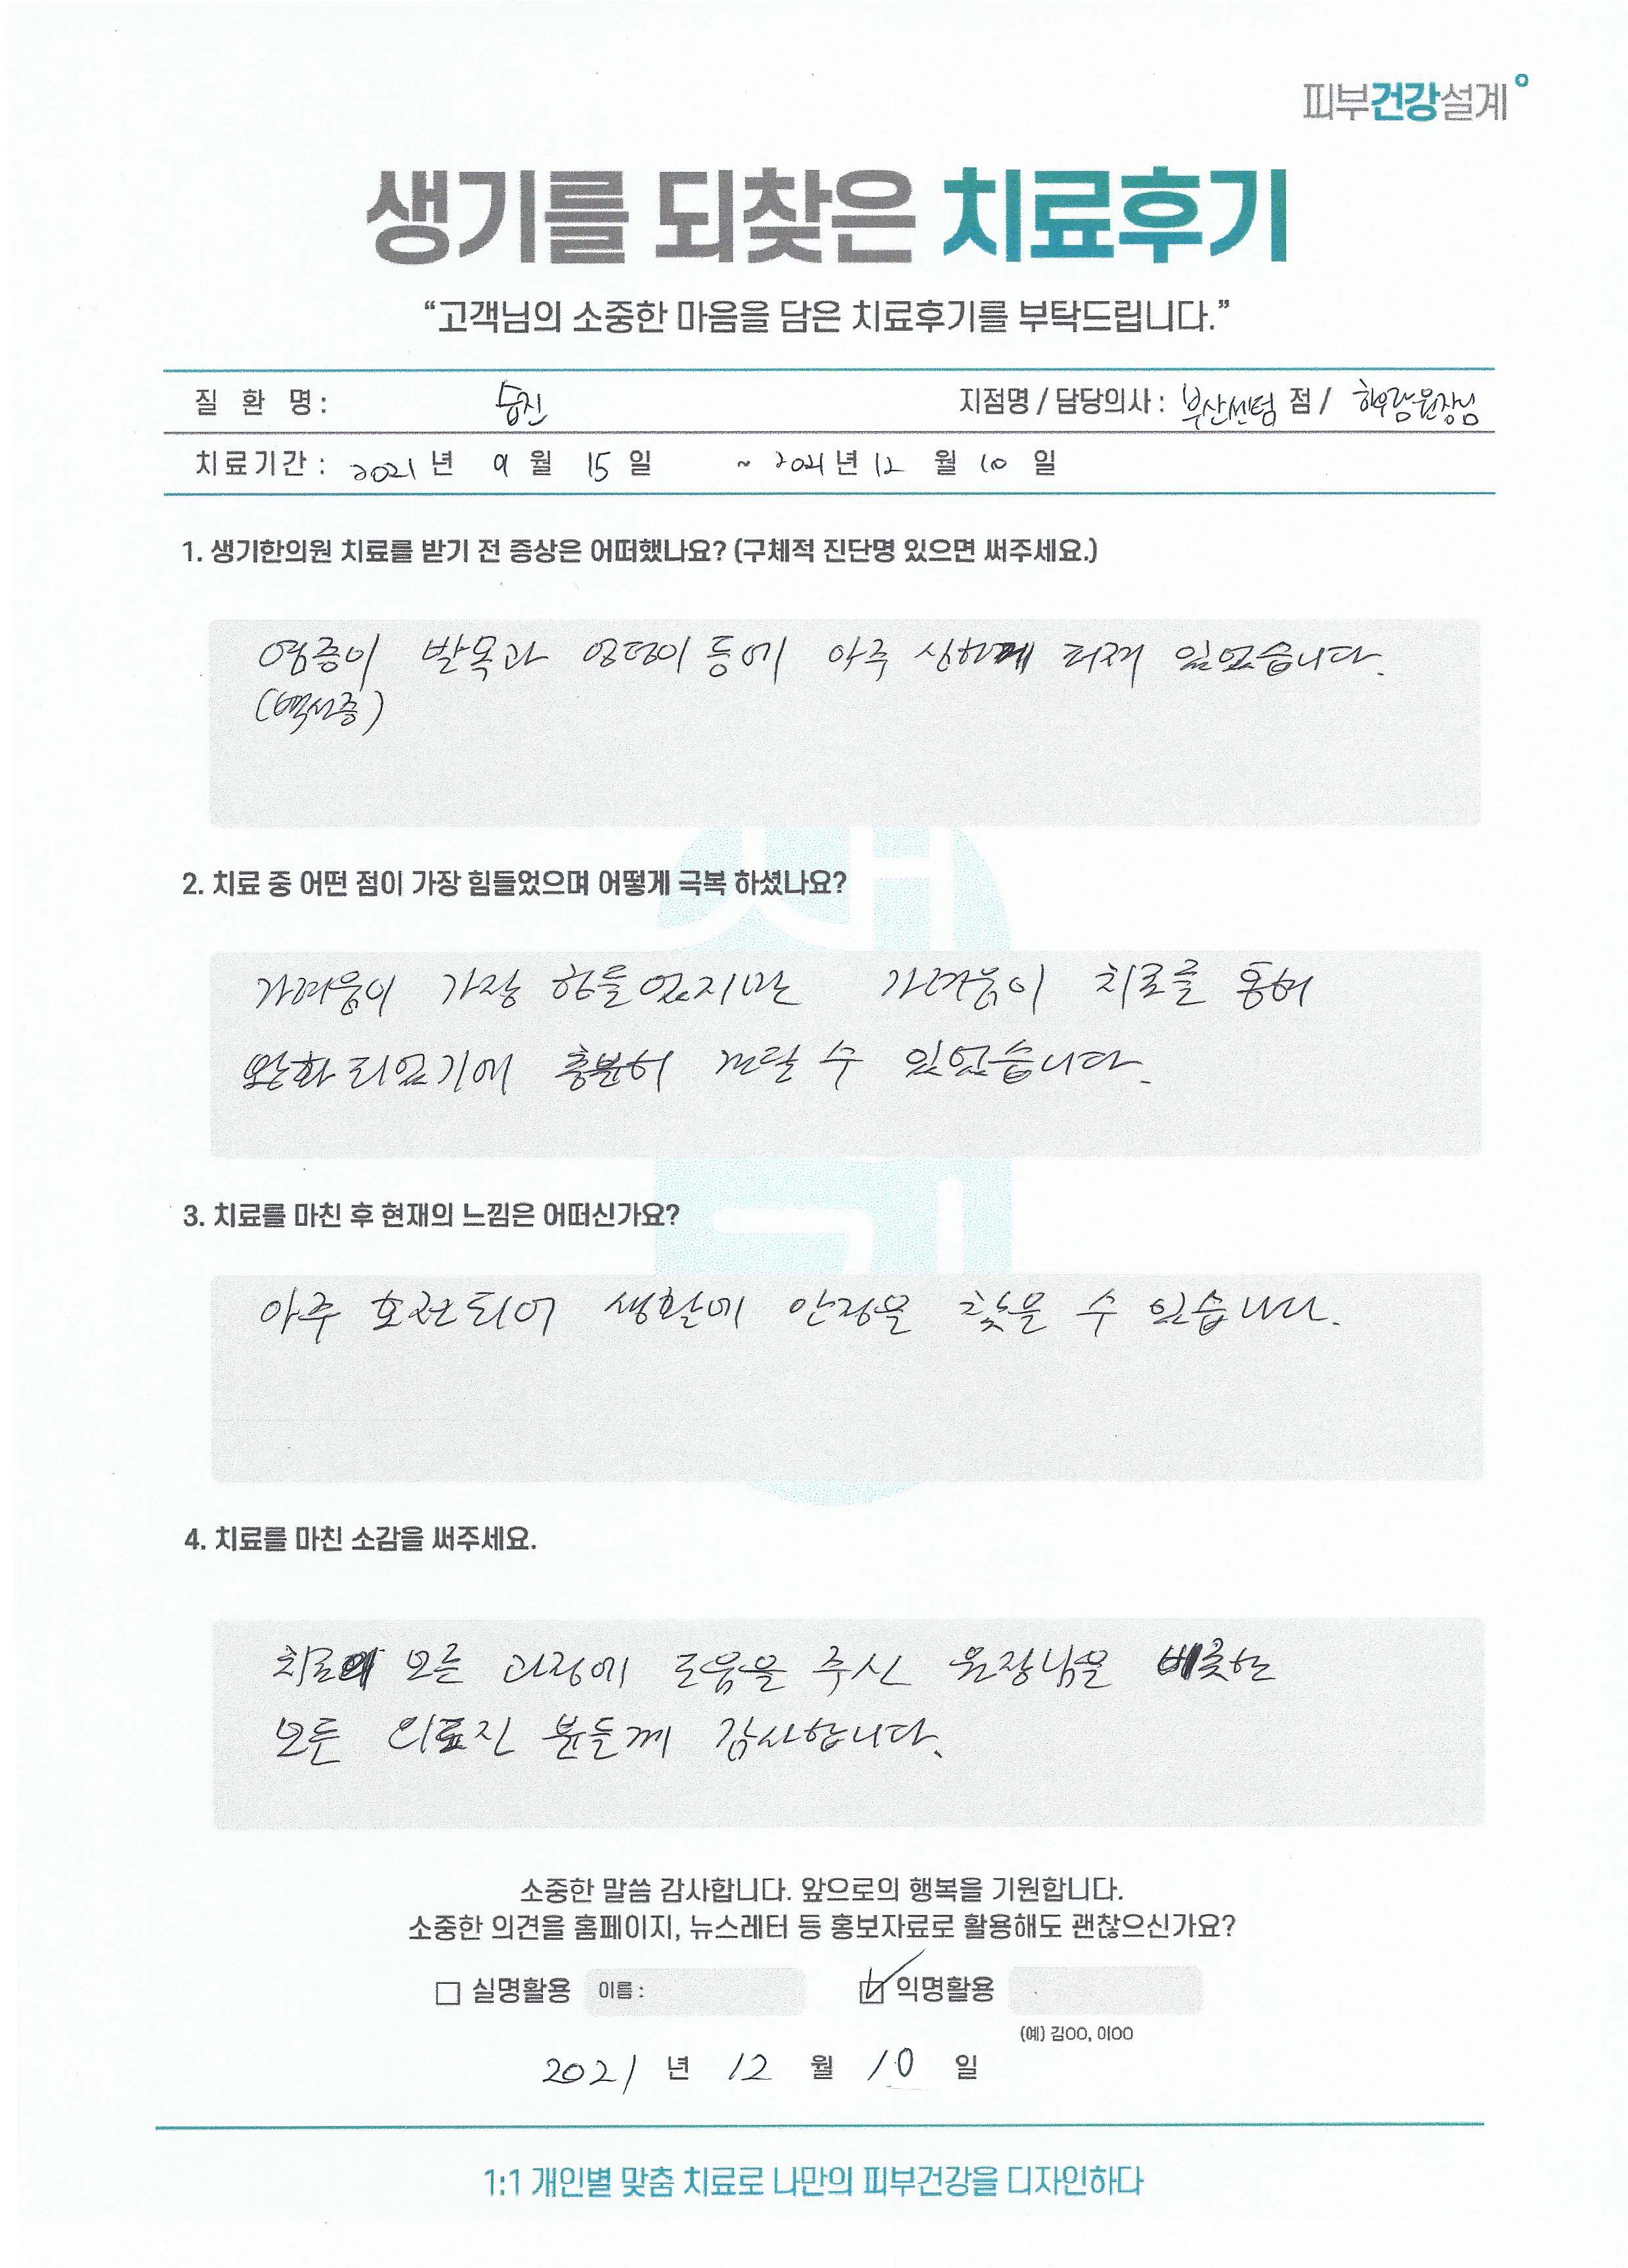 피부건강설계
생기를 되찾은 치료후기
“고객님의 소중한 마음을 담은 치료후기를 부탁드립니다.”
질 환 명: 습진 지점명 / 담당의사: 부산센텀 점 / 하우람원장님
치료기간: 2021 년 9 월 15 일 ~ 2021 년 12 월 10 일
1. 생기한의원 치료를 받기 전 증상은 어떠했나요? (구체적 진단명 있으면 써주세요.)
염증이 발목과 엉덩이 등에 아주 심하게 퍼져 있었습니다.
(백선증)
2. 치료 중 어떤 점이 가장 힘들었으며 어떻게 극복 하셨나요?
가려움이 가장 힘들었지만 가려움이 치료를 통해
완화 되었기에 충분히 견딜 수 있었습니다.
3. 치료를 마친 후 현재의 느낌은 어떠신가요?
아주 호전되어 생활에 안정을 찾을 수 있습니다.
4. 치료를 마친 소감을 써주세요.
치료의 모든 과정에 도움을 주신 원장님을 비롯한
모든 의료진 분들께 감사합니다.
소중한 말씀 감사합니다. 앞으로의 행복을 기원합니다.
소중한 의견을 홈페이지, 뉴스레터 등 홍보자료로 활용해도 괜찮으신가요?
실명활용 이름: 익명활용
(예) 김OO, 이OO
2021 년 12 월 10 일
1:1 개인별 맞춤 치료로 나만의 피부건강을 디자인하다